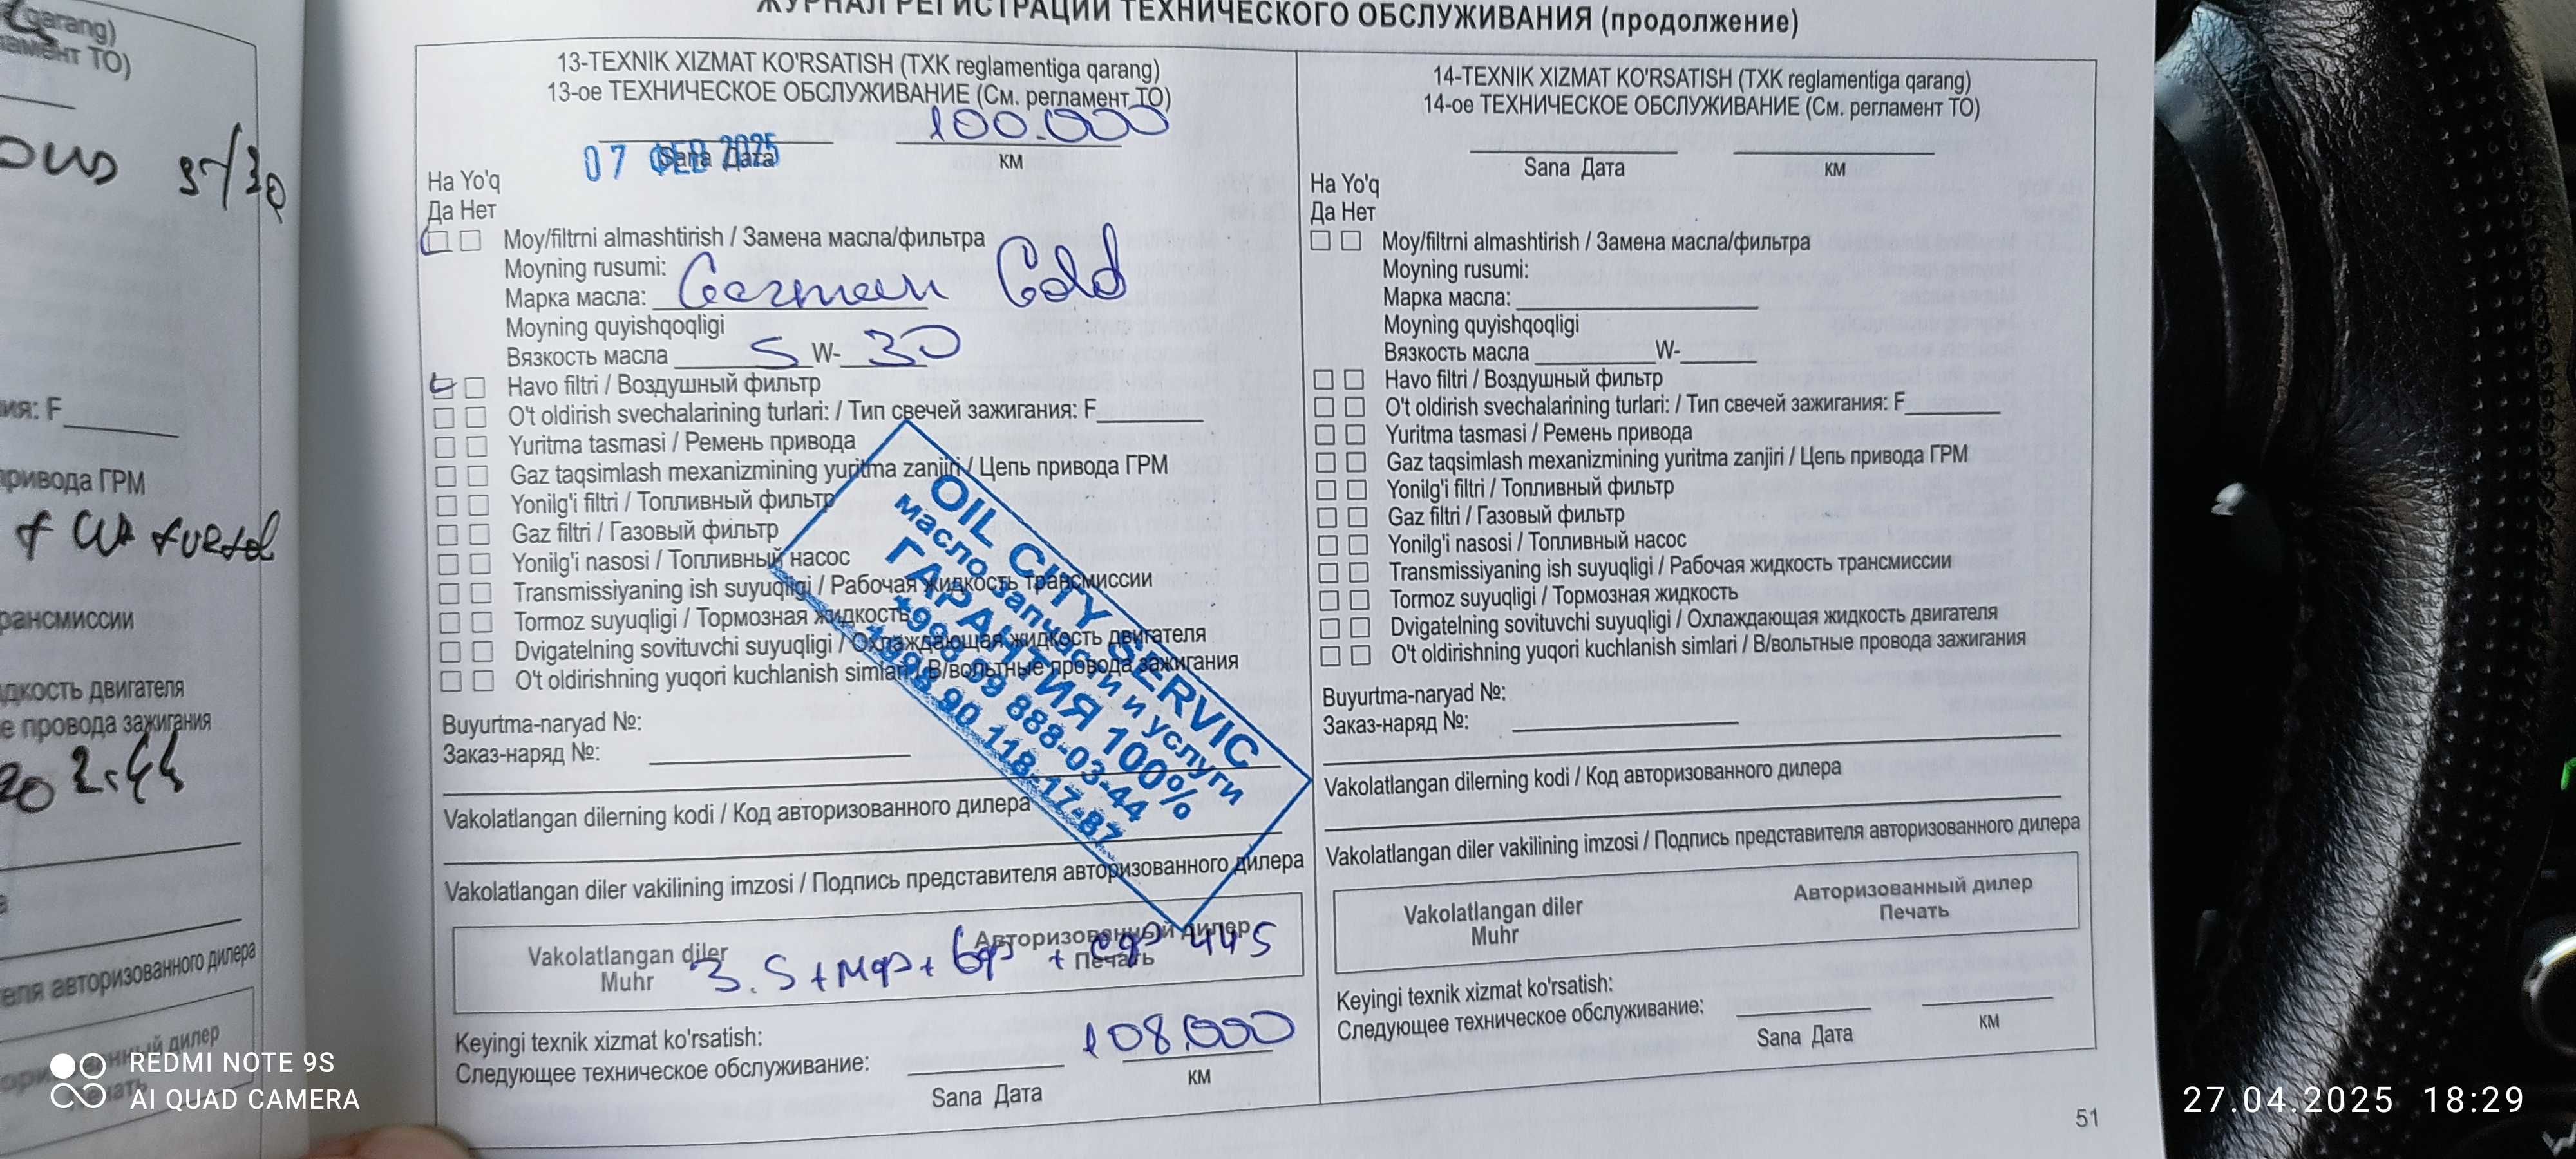 qarang)
ламент ТО)
5/30
ия: F
привода ГРМ
рансмиссии
дкость двигателя
е провода зажигания
еля авторизованного дилера
ЖУРНАЛ РЕГИСТРАЦИИ ТЕХНИЧЕСКОГО ОБСЛУЖИВАНИЯ (продолжение)
13-TEXNIK XIZMAT KO'RSATISH (TXK reglamentiga qarang)
13-ое ТЕХНИЧЕСКОЕ ОБСЛУЖИВАНИЕ (См. регламент ТО)
07 ФЕВ 2025 100.000
Sana Дата км
Ha Yo'q
Да Нет
Moy/filtrni almashtirish / Замена масла/фильтра
Moyning rusumi:
Марка масла: German Gold
Moyning quyishqoqligi
Вязкость масла 5 W- 30
Havo filtri / Воздушный фильтр
O't oldirish svechalarining turlari: / Тип свечей зажигания: F
Yuritma tasmasi / Ремень привода
Gaz taqsimlash mexanizmining yuritma zanjiri / Цепь привода ГРМ
Yonilg'i filtri / Топливный фильтр
Gaz filtri / Газовый фильтр
Yonilg'i nasosi / Топливный насос
Transmissiyaning ish suyuqligi / Рабочая жидкость трансмиссии
Tormoz suyuqligi / Тормозная жидкость
Dvigatelning sovituvchi suyuqligi / Охлаждающая жидкость двигателя
O't oldirishning yuqori kuchlanish simlari / В/вольтные провода зажигания
OIL CITY SERVIC
масло запчасти и услуги
ГАРАНТИЯ 100%
+998 99 888-03-44
+998 90 118-17-87
Buyurtma-naryad №:
Заказ-наряд №:
Vakolatlangan dilerning kodi / Код авторизованного дилера
Vakolatlangan diler vakilining imzosi / Подпись представителя авторизованного дилера
Vakolatlangan diler Авторизованный дилер
Muhr Печать
3.5+мф+вф + сф 445
Keyingi texnik xizmat ko'rsatish:
Следующее техническое обслуживание: 108.000
Sana Дата км
14-TEXNIK XIZMAT KO'RSATISH (TXK reglamentiga qarang)
14-ое ТЕХНИЧЕСКОЕ ОБСЛУЖИВАНИЕ (См. регламент ТО)
Sana Дата км
Ha Yo'q
Да Нет
Moy/filtrni almashtirish / Замена масла/фильтра
Moyning rusumi:
Марка масла:
Moyning quyishqoqligi
Вязкость масла W-
Havo filtri / Воздушный фильтр
O't oldirish svechalarining turlari: / Тип свечей зажигания: F
Yuritma tasmasi / Ремень привода
Gaz taqsimlash mexanizmining yuritma zanjiri / Цепь привода ГРМ
Yonilg'i filtri / Топливный фильтр
Gaz filtri / Газовый фильтр
Yonilg'i nasosi / Топливный насос
Transmissiyaning ish suyuqligi / Рабочая жидкость трансмиссии
Tormoz suyuqligi / Тормозная жидкость
Dvigatelning sovituvchi suyuqligi / Охлаждающая жидкость двигателя
O't oldirishning yuqori kuchlanish simlari / В/вольтные провода зажигания
Buyurtma-naryad №:
Заказ-наряд №:
Vakolatlangan dilerning kodi / Код авторизованного дилера
Vakolatlangan diler vakilining imzosi / Подпись представителя авторизованного дилера
Vakolatlangan diler Авторизованный дилер
Muhr Печать
Keyingi texnik xizmat ko'rsatish:
Следующее техническое обслуживание:
Sana Дата км
51
REDMI NOTE 9S
AI QUAD CAMERA
27.04.2025 18:29